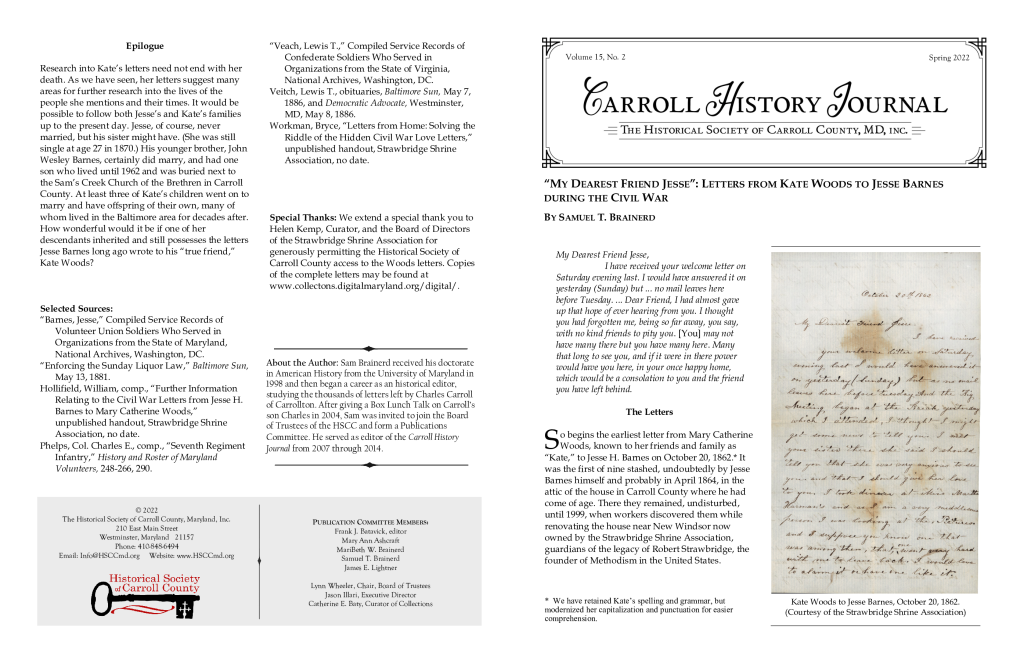 Epilogue
Research into Kate's letters need not end with her
death. As we have seen, her letters suggest many
areas for further research into the lives of the
people she mentions and their times. It would be
possible to follow both Jesse's and Kate's families
up to the present day. Jesse, of course, never
married, but his sister might have. (She was still
single at age 27 in 1870.) His younger brother, John
Wesley Barnes, certainly did marry, and had one
son who lived until 1962 and was buried next to
the Sam's Creek Church of the Brethren in Carroll
County. At least three of Kate's children went on to
marry and have offspring of their own, many of
whom lived in the Baltimore area for decades after.
How wonderful would it be if one of her
descendants inherited and still possesses the letters
Jesse Barnes long ago wrote to his "true friend,"
Kate Woods?
Selected Sources:
"Barnes, Jesse," Compiled Service Records of
Volunteer Union Soldiers Who Served in
Organizations from the State of Maryland,
National Archives, Washington, DC.
"Enforcing the Sunday Liquor Law," Baltimore Sun,
May 13, 1881.
Hollifield, William, comp., "Further Information
Relating to the Civil War Letters from Jesse H.
Barnes to Mary Catherine Woods,"
unpublished handout, Strawbridge Shrine
Association, no date.
Phelps, Col. Charles E., comp., "Seventh Regiment
Infantry," History and Roster of Maryland
Volunteers, 248-266, 290.
"Veach, Lewis T.," Compiled Service Records of
Confederate Soldiers Who Served in
Organizations from the State of Virginia,
National Archives, Washington, DC.
Veitch, Lewis T., obituaries, Baltimore Sun, May 7,
1886, and Democratic Advocate, Westminster,
MD, May 8, 1886.
Workman, Bryce, "Letters from Home: Solving the
Riddle of the Hidden Civil War Love Letters,"
unpublished handout, Strawbridge Shrine
Association, no date.
Special Thanks: We extend a special thank you to
Helen Kemp, Curator, and the Board of Directors
of the Strawbridge Shrine Association for
generously permitting the Historical Society of
Carroll County access to the Woods letters. Copies
of the complete letters may be found at
www.collectons.digitalmaryland.org/digital/.
About the Author: Sam Brainerd received his doctorate
in American History from the University of Maryland in
1998 and then began a career as an historical editor,
studying the thousands of letters left by Charles Carroll
of Carrollton. After giving a Box Lunch Talk on Carroll's
son Charles in 2004, Sam was invited to join the Board
of Trustees of the HSCC and form a Publications
Committee. He served as editor of the Carroll History
Journal from 2007 through 2014.
© 2022
The Historical Society of Carroll County, Maryland, Inc.
210 East Main Street
Westminster, Maryland 21157
Phone: 410-848-6494
Email: Info@HSCCmd.org Website: www.HSCCmd.org
Historical Society
of Carroll County
Publication Committee Members:
Frank J. Batavick, editor
Mary Ann Ashcraft
MariBeth W. Brainerd
Samuel T. Brainerd
James E. Lightner
Lynn Wheeler, Chair, Board of Trustees
Jason Illari, Executive Director
Catherine E. Baty, Curator of Collections
Volume 15, No. 2
Spring 2022
Carroll History Journal
The Historical Society of Carroll County, MD, inc.
"My Dearest Friend Jesse": Letters from Kate Woods to Jesse Barnes
during the Civil War
By Samuel T. Brainerd
My Dearest Friend Jesse,
I have received your welcome letter on
Saturday evening last. I would have answered it on
yesterday (Sunday) but ... no mail leaves here
before Tuesday. ... Dear Friend, I had almost gave
up that hope of ever hearing from you. I thought
you had forgotten me, being so far away, you say,
with no kind friends to pity you. [You] may not
have many there but you have many here. Many
that long to see you, and if it were in there power
would have you here, in your once happy home,
which would be a consolation to you and the friend
you have left behind.
The Letters
So begins the earliest letter from Mary Catherine
Woods, known to her friends and family as
"Kate," to Jesse H. Barnes on October 20, 1862.* It
was the first of nine stashed, undoubtedly by Jesse
Barnes himself and probably in April 1864, in the
attic of the house in Carroll County where he had
come of age. There they remained, undisturbed,
until 1999, when workers discovered them while
renovating the house near New Windsor now
owned by the Strawbridge Shrine Association,
guardians of the legacy of Robert Strawbridge, the
founder of Methodism in the United States.
* We have retained Kate's spelling and grammar, but
modernized her capitalization and punctuation for easier
comprehension.
My Dearest Friend Jesse
I have received
your welcome letter on Saturday
evening last I would have answered it
on yesterday (Sunday) but as no mail
leaves here before Tuesday
Meeting began at the yesterday
which I attended I thought I might
get some news to tell you
your sister there she said I should
tell you that she was very anxious to see
you and that I should give her love
to you I took dinner at
Kate Woods to Jesse Barnes, October 20, 1862.
(Courtesy of the Strawbridge Shrine Association)